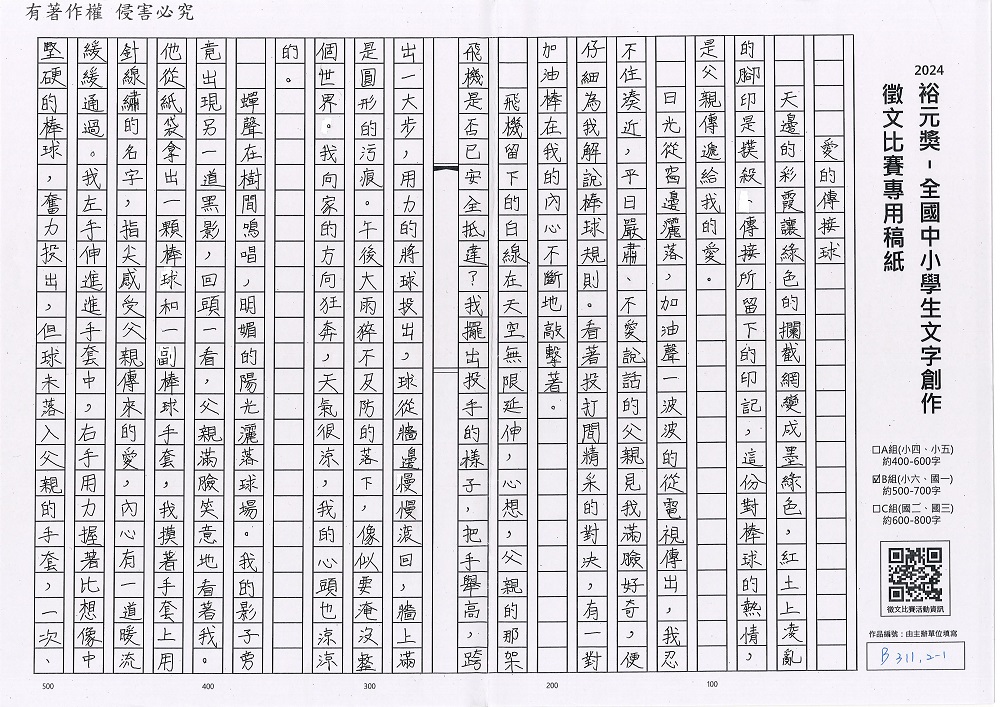 有著作權 侵害必究
2024
裕元獎-全國中小學生文字創作
徵文比賽專用稿紙
□A組(小四、小五)
約400-600字
☑B組(小六、國一)
約500-700字
□C組(國二、國三)
約600-800字
徵文比賽活動資訊
作品編號：由主辦單位填寫
B311.2-1
愛的傳接球
天邊的彩霞讓綠色的攔截網變成墨綠色，紅土上凌亂
的腳印是撲殺、傳接所留下的印記，這份對棒球的熱情，
是父親傳遞給我的愛。
日光從窗邊灑落，加油聲一波波的從電視傳出，我忍
不住湊近，平日嚴肅、不愛說話的父親見我滿臉好奇，便
仔細為我解說棒球規則。看著投打間精采的對決，有一對
加油棒在我的內心不斷地敲擊著。
飛機留下的白線在天空無限延伸，心想，父親的那架
飛機是否已安全抵達？我擺出投手的樣子，把手舉高，跨
出一大步，用力的將球投出，球從牆邊慢慢滾回，牆上滿
是圓形的污痕。午後大雨猝不及防的落下，像似要淹沒整
個世界。我向家的方向狂奔，天氣很涼，我的心頭也涼涼
的。
蟬聲在樹間鳴唱，明媚的陽光灑落球場。我的影子旁
竟出現另一道黑影，回頭一看，父親滿臉笑意地看著我。
他從紙袋拿出一顆棒球和一副棒球手套，我摸著手套上用
針線繡的名字，指尖感受父親傳來的愛，內心有一道暖流
緩緩通過。我左手伸進進手套中，右手用力握著比想像中
堅硬的棒球，奮力投出，但球未落入父親的手套，一次、
100
200
300
400
500